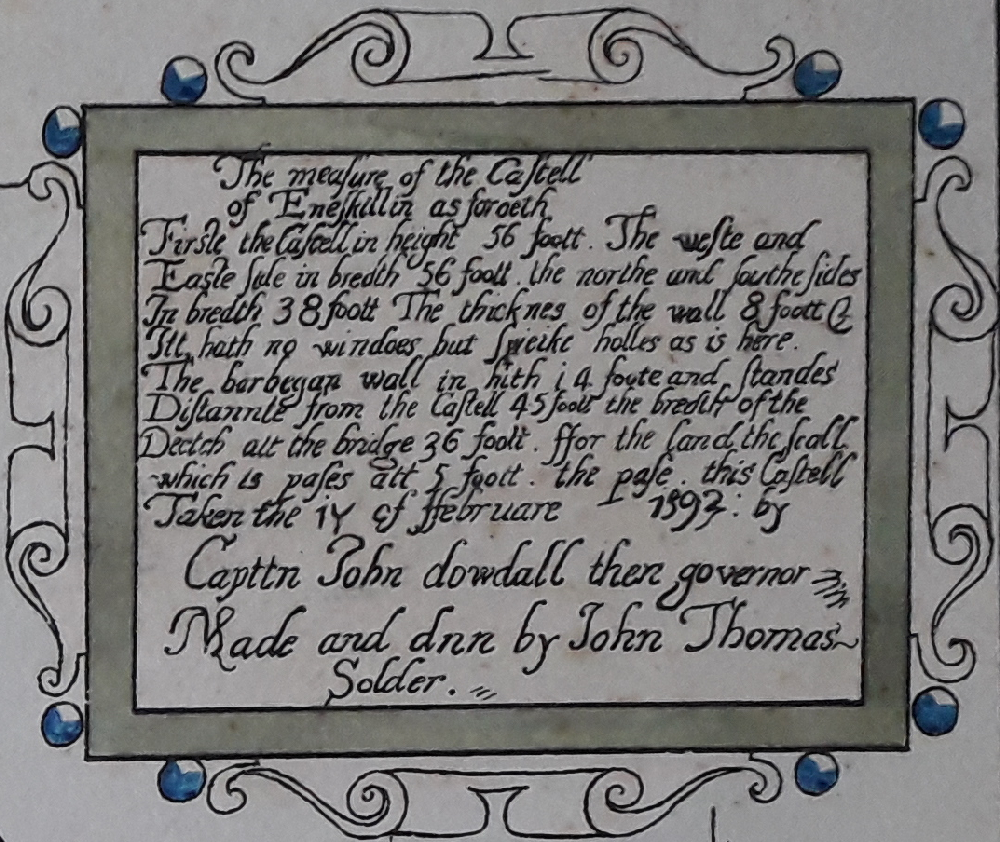 The meaſure of the Caſtell
of Eneſkillin as foroeth
Firste the Caſtell in height 56 foott. The weſte and
Easte ſide in bredth 56 foott. the northe and ſouthe ſides
In bredth 38 foott The thicknes of the wall 8 foott
Itt hath no windoes but ſpeike holles as is here.
The barbegan wall in hith i4 foote and ſtandes
Diſtannte from the Caſtell 45 foott the bredth of the
Deetch att the bridge 36 foott. ffor the land the ſcall
which is paſes att 5 foott. the paſe. this Caſtell
Taken the iy of ffebruare 1593: by
Capttn John dowdall then governor
Made and dnn by John Thomas
Solder.